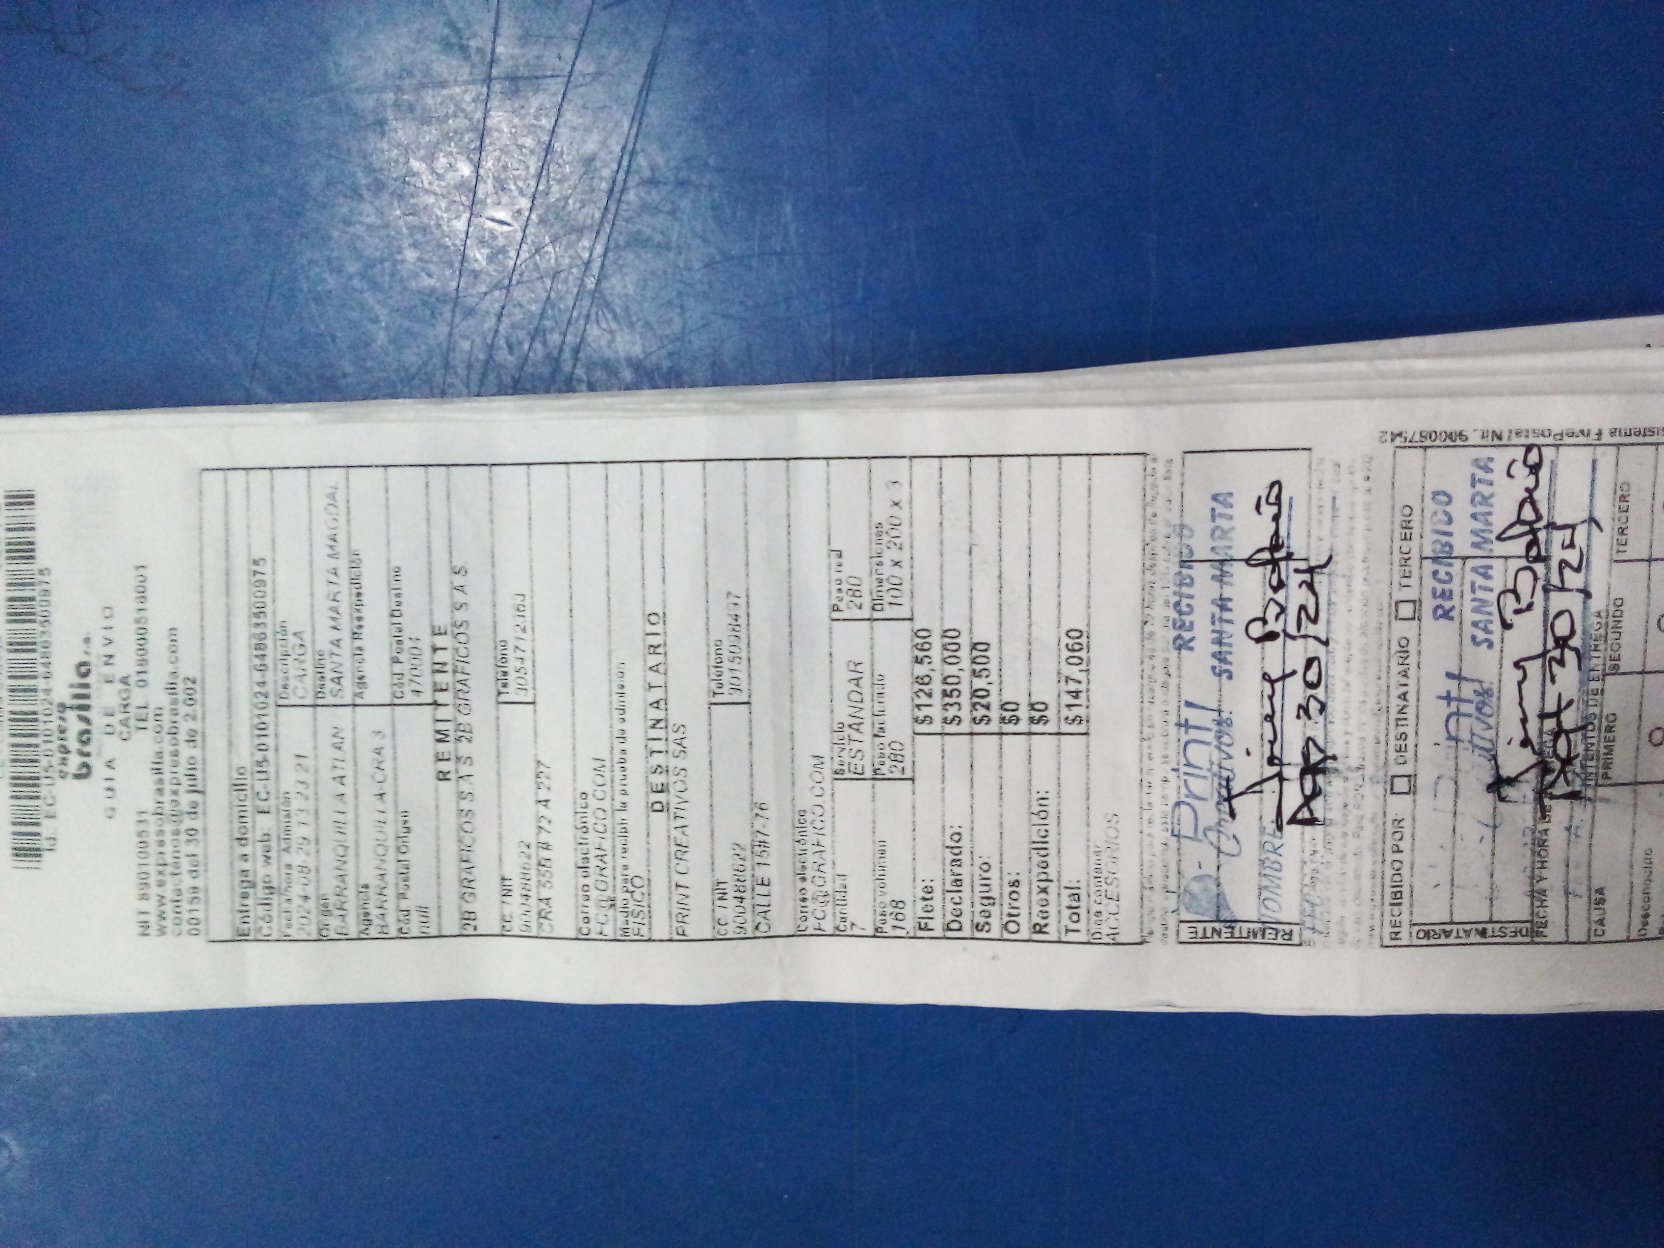 expreso
brasilia s.a.
GUIA DE ENVIO
CARGA
NIT 890100531 TEL 018000518001
www.expresobrasilia.com
contactenos@expresobrasilia.com
00159 del 30 de julio de 2.002
Entrega a domicilio
Código web:
Fecha/hora Admisión Descripción
CARGA
Origen Destino
BARRANQUILLA ATLAN SANTA MARTA MAGDAL
Agencia Agencia Reexpedición
BARRANQUILLA CRA 3
Cód Postal Origen Cód Postal Destino
null 470001
REMITENTE
2B GRAFICOS S A S 2B GRAFICOS S A S
CC / NIT Teléfono
900488622
CRA 55B # 72 A 227
Correo electrónico
Medio para recibir la prueba de admisión
FISICO
DESTINATARIO
PRINT CREATIVOS SAS
CC / NIT Teléfono
900488622
CALLE 15#7-76
Correo electrónico
Cantidad Servicio Peso red
7 ESTÁNDAR 280
Peso volumen Peso facturado Dimensiones
168 280 100 x 200 x 3
Flete: $126,560
Declarado: $350,000
Seguro: $20,500
Otros: $0
Reexpedición: $0
Total: $147,060
Dice contener
ACCESORIOS
Print RECIBIDO
Creativos! SANTA MARTA
REMITENTE
NOMBRE
30/24
RECIBIDO POR: DESTINATARIO TERCERO
Print RECIBIDO
SANTA MARTA
DESTINATARIO
FECHA Y HORA DE ENTREGA
30/24
INTENTOS DE ENTREGA
CAUSA PRIMERO SEGUNDO TERCERO
Desconocido
Sistema FivePostal Nit. 900087542